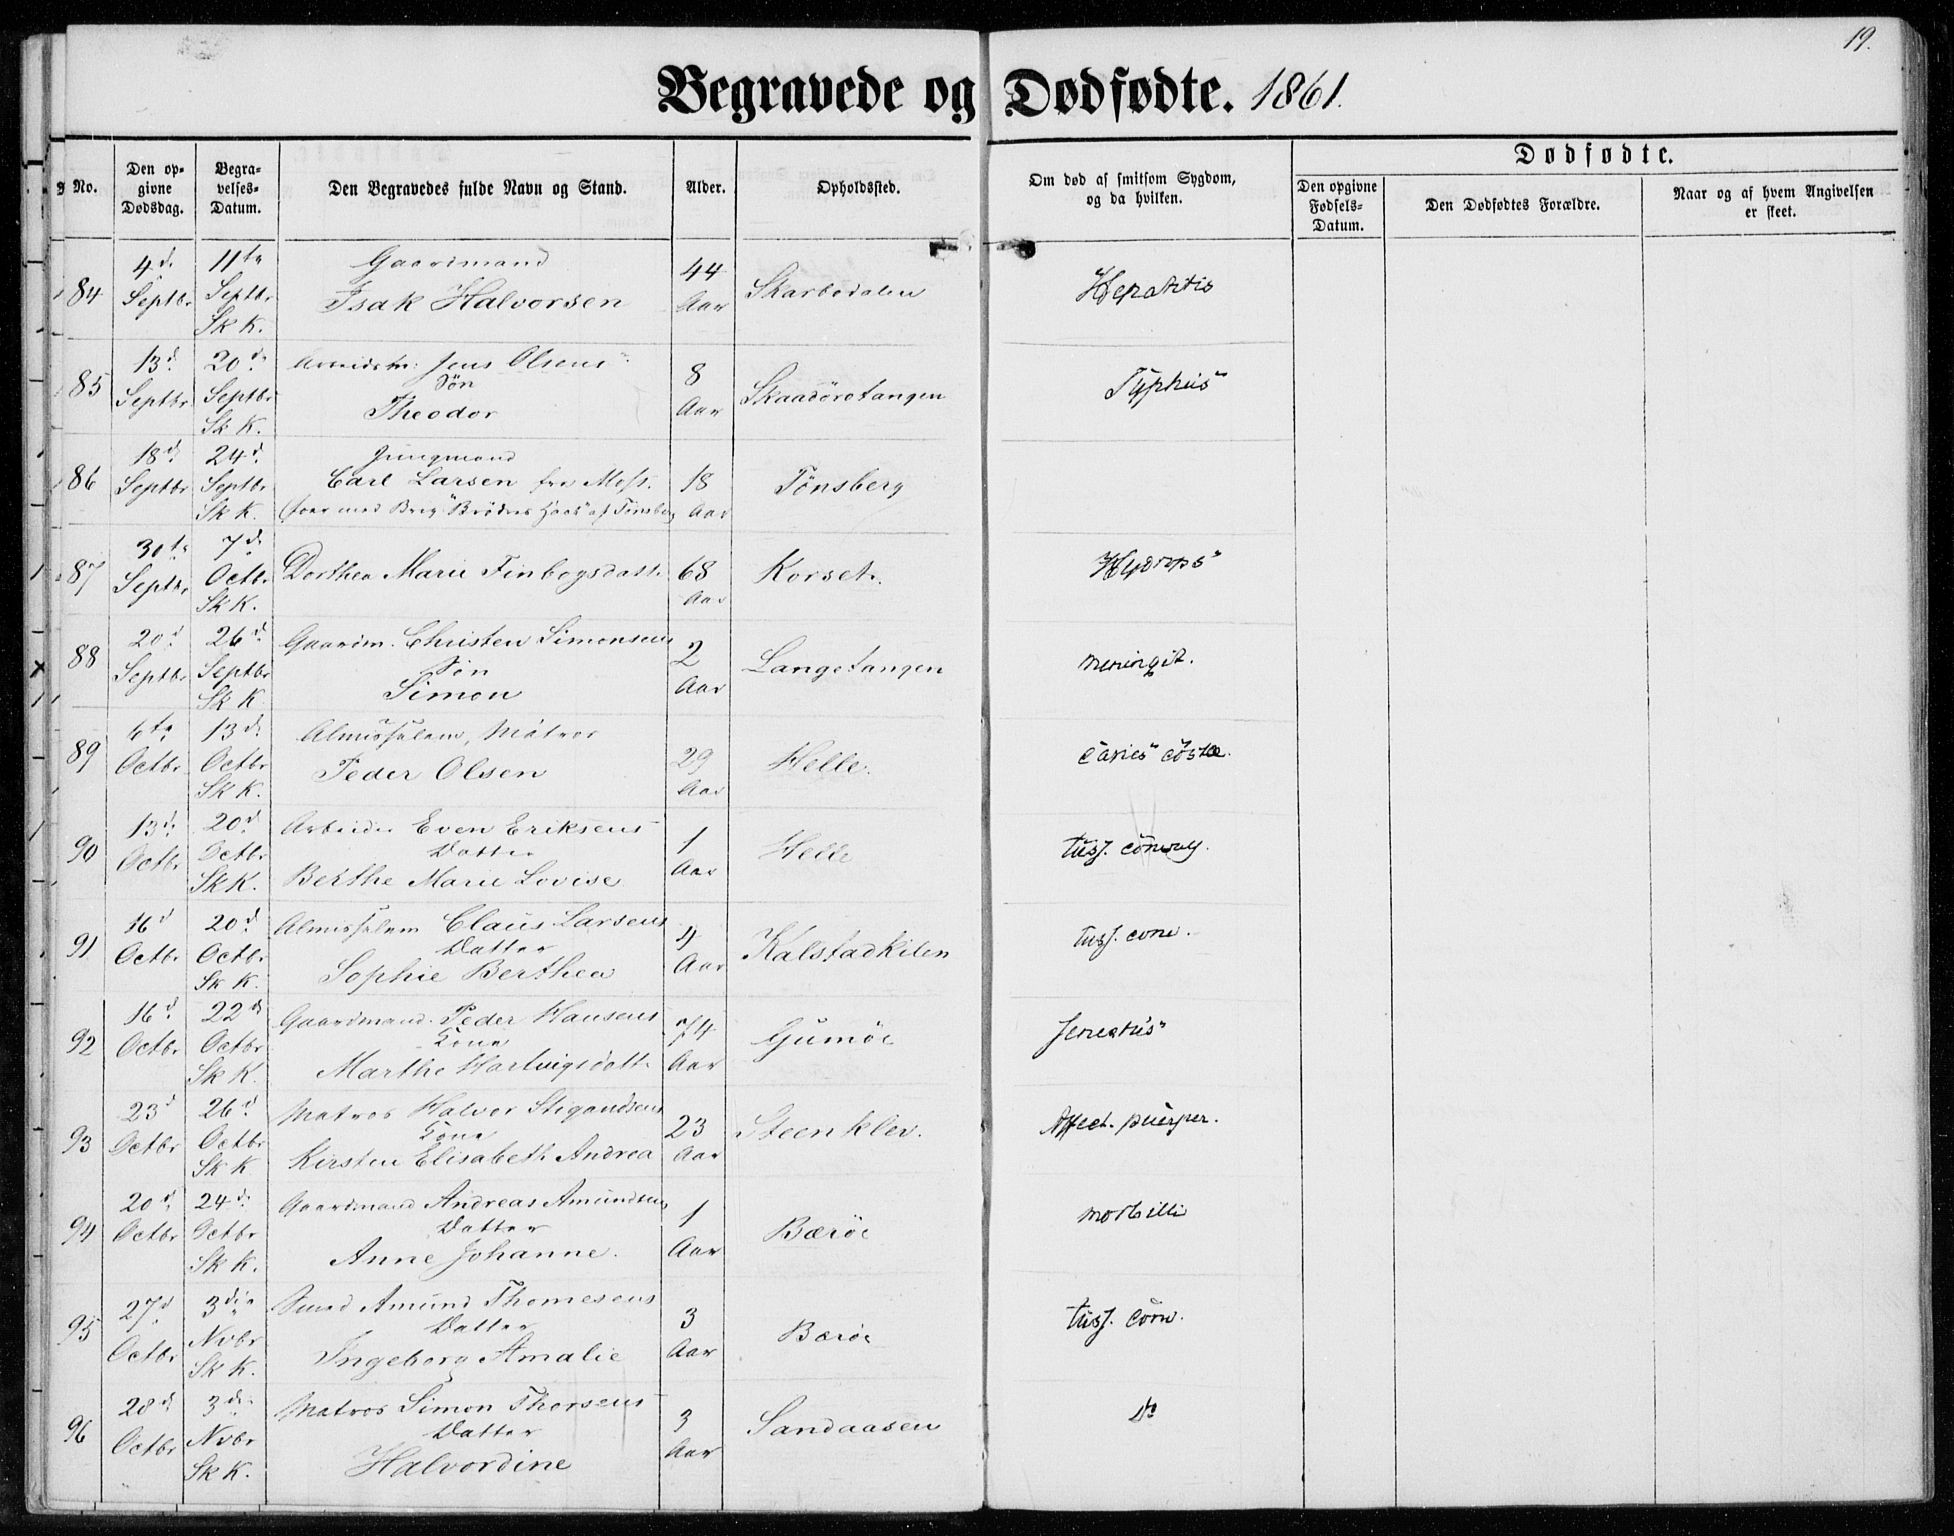 19.
Begravede og Dødfødte. 1861.
No.
Den op-
givne
Dødsdag.
Begra-
velses-
Datum.
Den Begravedes fulde Navn og Stand.
Alder.
Opholdssted.
Om død af smitsom Sygdom,
og da hvilken.
Dødfødte.
Den opgivne
Fødsels-
Datum.
Den Dødfødtes Forældre.
Naar og af hvem Angivelsen
er skeet.
84 4d. Septbr 11te Septbr Sk K. Gaardmand
Isak Halvorsen 44 Aar Skarbodalen Hepatitis
85 13d. Septbr 20d. Septbr Sk K. Arbeidsm: Jens Olsens
Søn
Theodor 8 Aar Skaadørotangen Typhus
86 18d. Septbr 24d. Septbr Sk K. Jungmand
Carl Larsen fra
med Brig "Brødrene af Tønsberg 18 Aar Tønsberg
87 30te Septbr 7d. Octbr Sk K. Dorthea Marie Finbogsdatt. 68 Aar Korset. Hydrops
88 20d Septbr 26d. Septbr Sk K Gaardm. Christen Simonsens
Søn
Simon 2 Aar Langetangen meningit.
89 6te Octbr 13d. Octbr Sk K. Almisselem, Matros
Peder Olsen 29 Aar Helle. Caries costæ.
90 13d. Octbr 20d Octbr Sk K. Arbeider Even Eriksens
Datter
Berthe Marie Lovise 1 Aar Helle tuss. convuls.
91 16d Octbr 20d. Octbr Sk K. Almisselem Claus Larsens
Datter
Sophie Berthea 4 Aar Kalstadkilen tuss. conv.
92 16d. Octbr 22d Octbr Sk K. Gaardmand Peder Hansens
Kone
Marthe Hartvigsdatt. 74 Aar Gumøe senectus
93 23d Octbr 26d Octbr Sk K. Matros Halvor Stigandsens
Kone
Kirsten Elisabeth Andrea 23 Aar Steenklev. Affect. puerper.
94 20d. Octbr 24d. Octbr Sk K. Gaardmand Andreas Amundsens
Datter
Anne Johanne. 1 Aar Bærøe morbilli
95 27d Octbr 3die Nvbr Sk K. Amund Thomesens
Datter
Ingeborg Amalie 3 Aar Bærøe tuss. conv.
96 28d. Octbr 3die Nvbr Sk K. Matros Simon Thorsens
Datter
Halvordine 3 Aar Sandaasen do